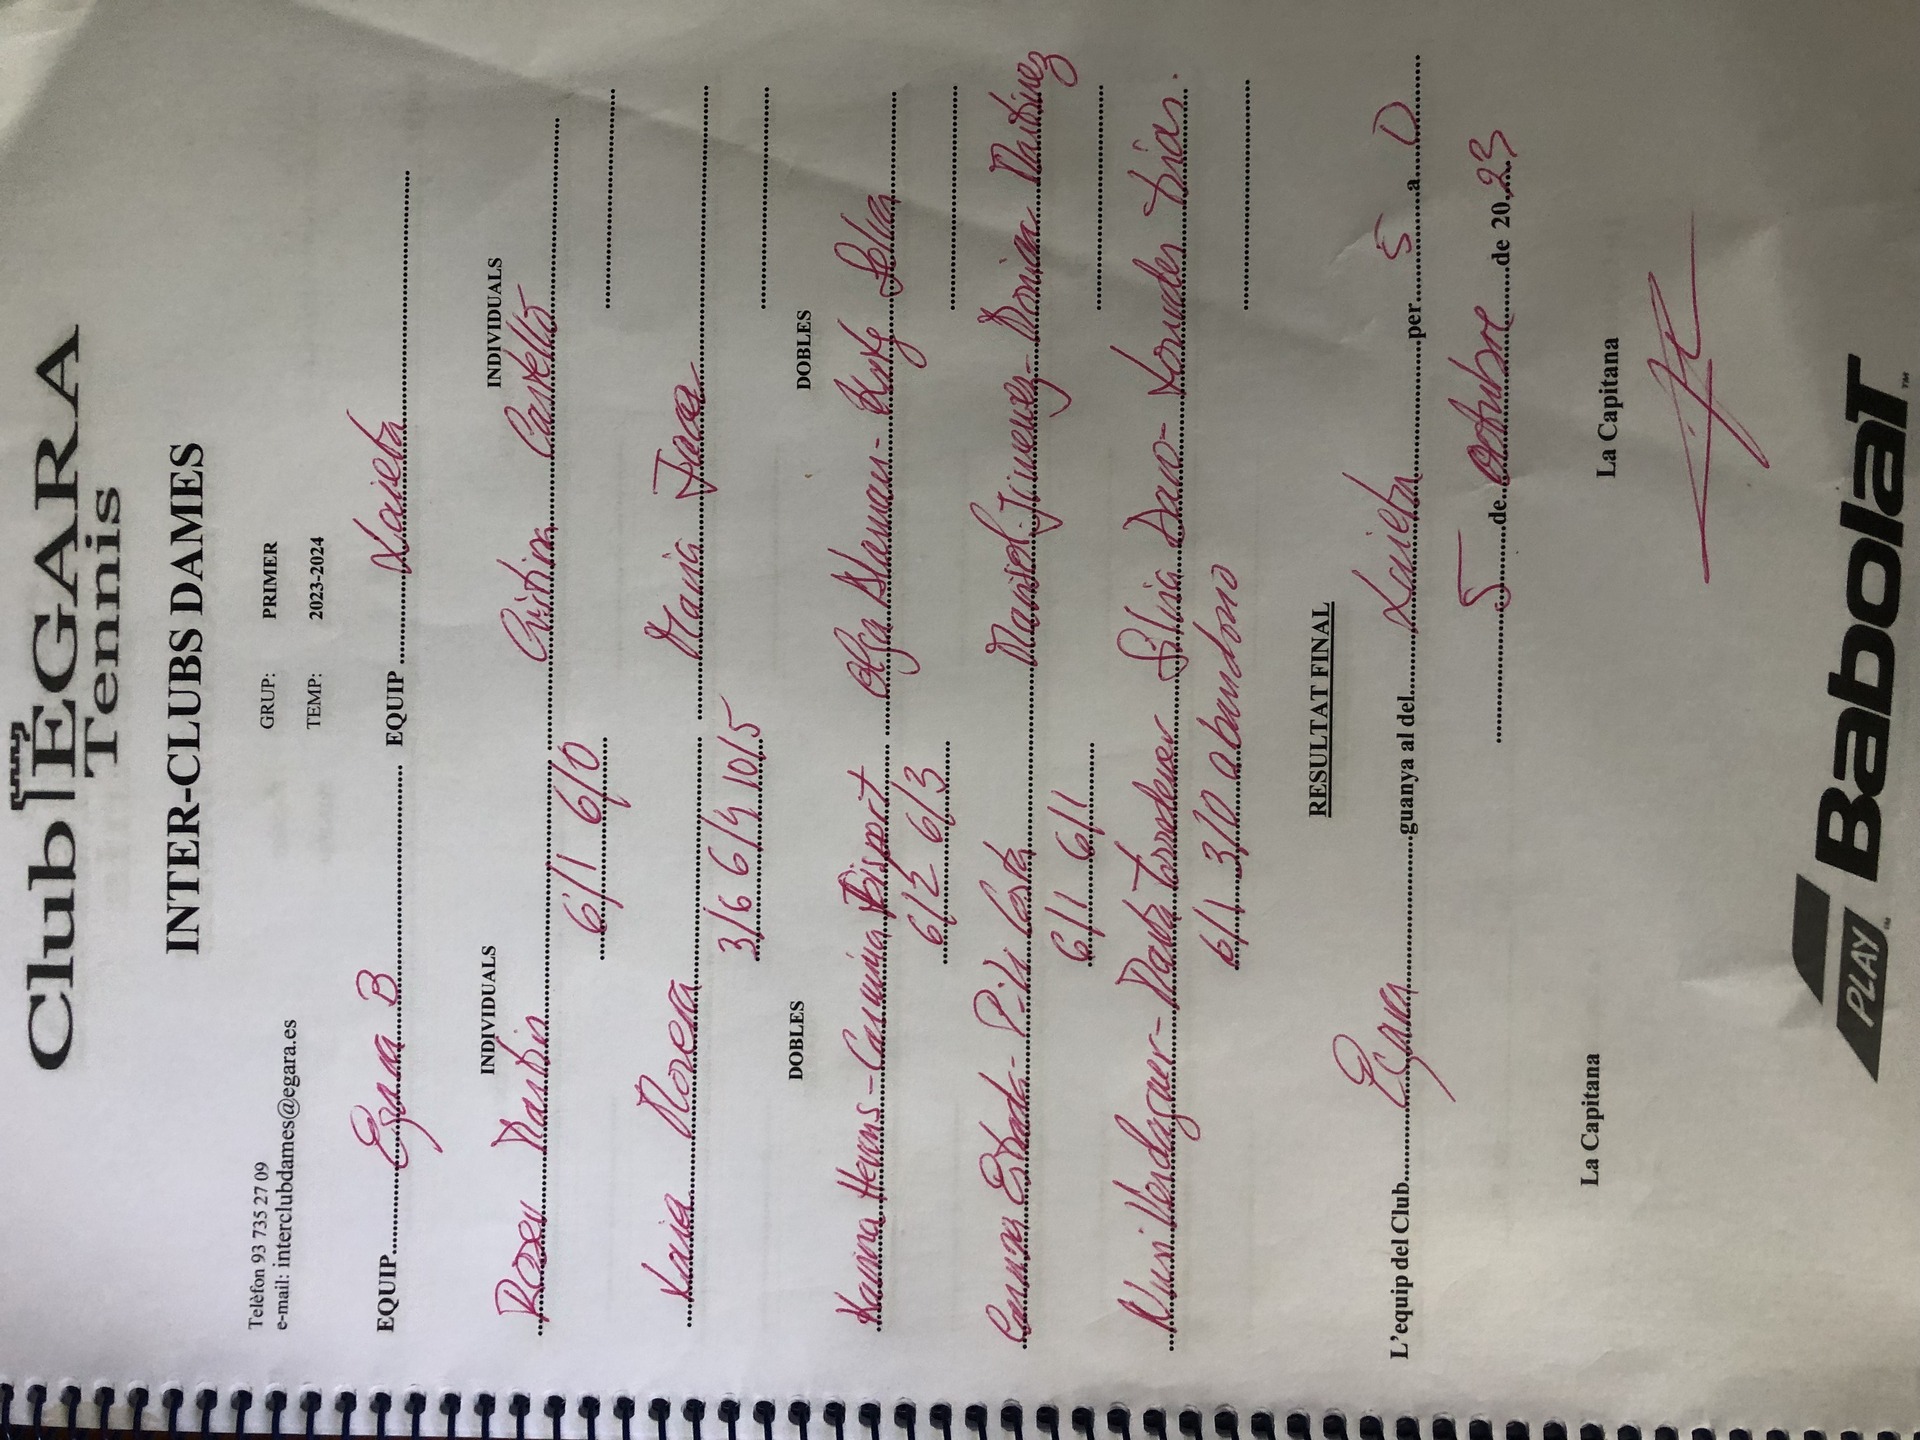 Club EGARA
Tennis
INTER-CLUBS DAMES
Telèfon 93 735 27 09 GRUP: PRIMER
e-mail: interclubdames@egara.es TEMP: 2023-2024
EQUIP Egara B EQUIP Laieta
INDIVIDUALS INDIVIDUALS
Roser Martin Cristina Castelló
6/1 6/0
Maria
3/6 6/4 10/5
DOBLES DOBLES
Karina Hervns - Carmina Bisport Olga Alaman -
6/2 6/3
Estrada - Pili Costa Marisol Jimenez - Martinez
6/1 6/1
Nuri Verdaguer - Marta Torredemer Silvia - Lourdes Dias.
6/1 3/0 abandono
RESULTAT FINAL
L'equip del Club Egara guanya al del Laieta per 5 a 0
5 de octubre de 2023
La Capitana La Capitana
PLAY BabolaT